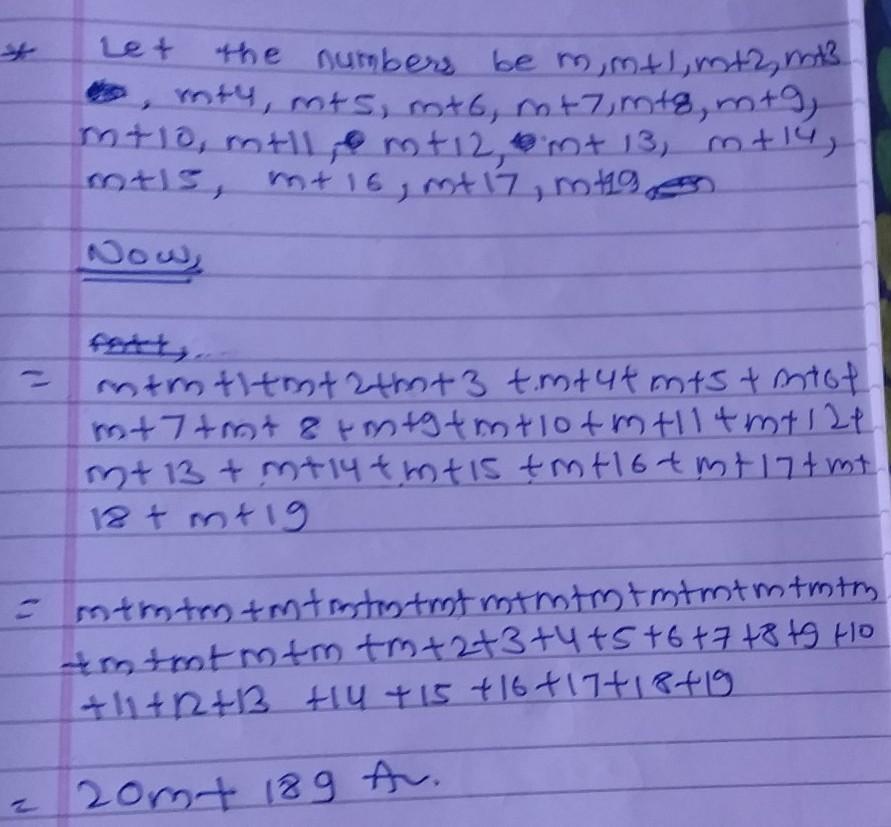 * Let the numbers be m, m+1, m+2, m+3
, m+4, m+5, m+6, m+7, m+8, m+9,
m+10, m+11, m+12, m+13, m+14,
m+15, m+16, m+17, m+19
Now,
= m+m+1+m+2+m+3+m+4+m+5+m+6+
m+7+m+8+m+9+m+10+m+11+m+12+
m+13+m+14+m+15+m+16+m+17+m+
18+m+19
= m+m+m+m+m+m+m+m+m+m+m+m+m+m+m
+m+m+m+m+m+2+3+4+5+6+7+8+9+10
+11+12+13+14+15+16+17+18+19
= 20m+189